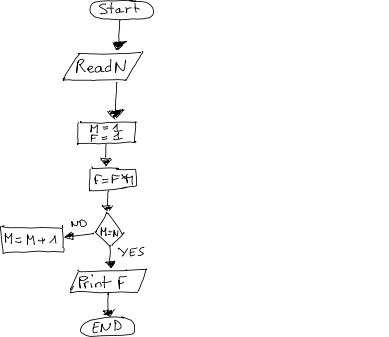 Start
Read N
M = 1
F = 1
F=F*M
M=N
NO
M = M + 1
YES
Print F
END